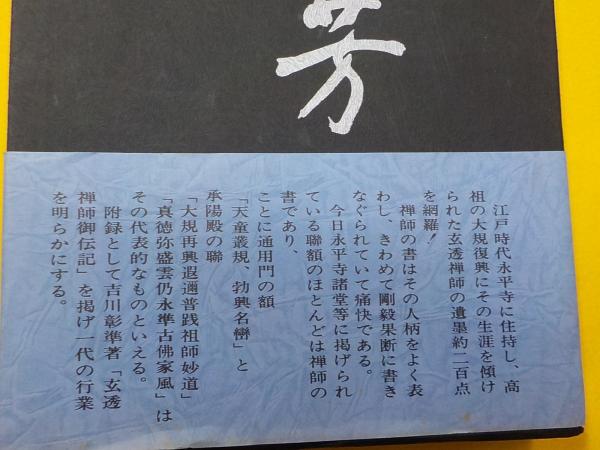 芳
江戸時代永平寺に住持し、高
祖の大規復興にその生涯を傾け
られた玄透禅師の遺墨約二百点
を網羅！
禅師の書はその人柄をよく表
わし、きわめて剛毅果断に書き
なぐられていて痛快である。
今日永平寺諸堂等に掲げられ
ている聯額のほとんどは禅師の
書であり、
ことに通用門の額
「天童叢規、勃興名巒」と
承陽殿の聯
「大規再興遐邇普践祖師妙道」
「真徳弥盛雲仍永準古佛家風」は
その代表的なものといえる。
附録として吉川彰準著「玄透
禅師御伝記」を掲げ一代の行業
を明らかにする。